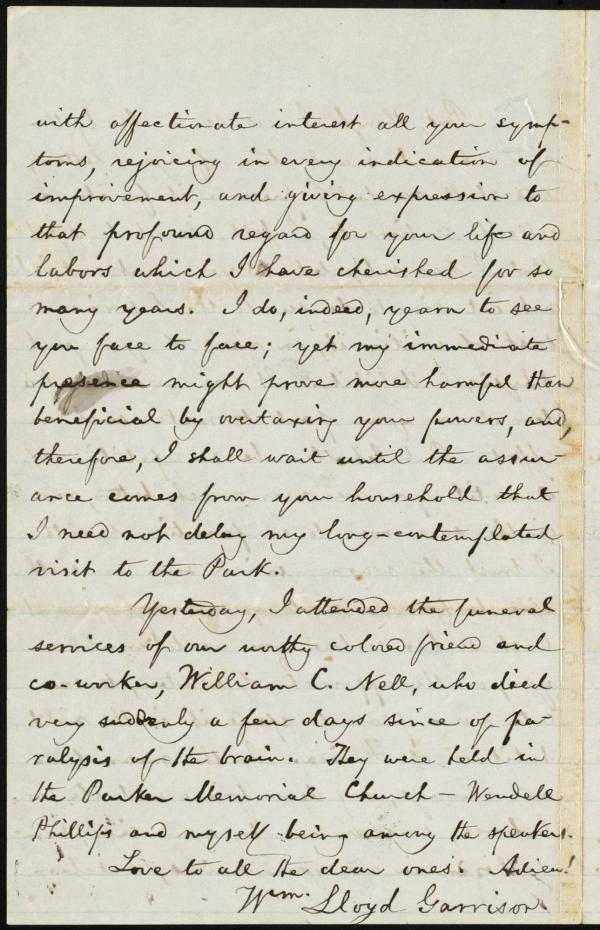 with affectionate interest all your symp-
toms, rejoicing in every indication of
improvement, and giving expression to
that profound regard for your life and
labors which I have cherished for so
many years. I do, indeed, yearn to see
you face to face; yet my immediate
presence might prove more harmful than
beneficial by overtaxing your powers, and,
therefore, I shall wait until the assur-
ance comes from your household that
I need not delay my long-contemplated
visit to the Park.
Yesterday, I attended the funeral
services of our worthy colored friend and
co-worker, William C. Nell, who died
very suddenly a few days since of pa-
ralysis of the brain. They were held in
the Parker Memorial Church — Wendell
Phillips and myself being among the speakers.
Love to all the dear ones. Adieu!
Wm. Lloyd Garrison.